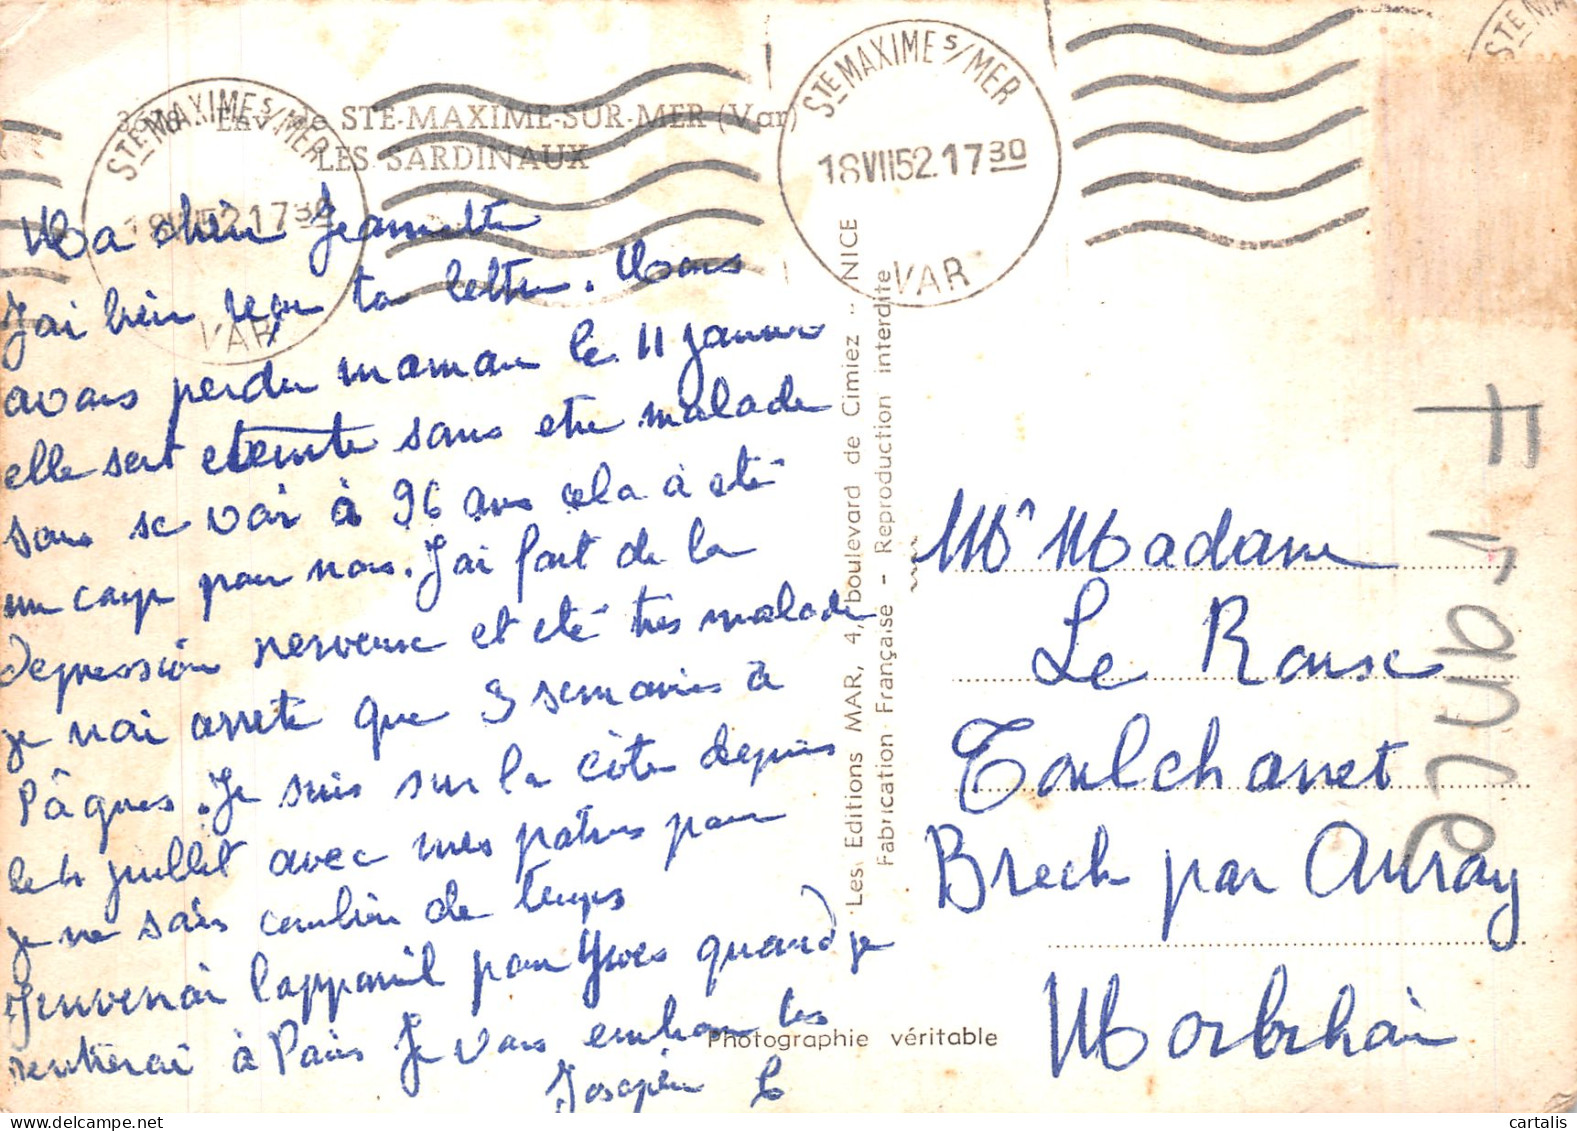 3678 - Env. de STE-MAXIME-SUR-MER (Var)
LES SARDINAUX
STE MAXIME S/MER
18 VII 52. 17 30
VAR
STE MAXIME S/MER
18 VII 52. 17 30
VAR
STE MA
Ma chèr Jeannette
J'ai bien reçu ta lettre. Nous
avons perdu maman le 11 janvier
elle sest eteinte sans etre malade
sans se voir à 96 ans cela à eté
un coup pour nous. J'ai fait de la
depression nerveuse et eté très malade
je nai arreté que 3 semaines à
Pâques. Je suis sur la côte depuis
le 4 juillet avec mes patrons pour
je ne sais combien de temps
J'enverrai l'appareil pour Yves quand je
rentrerai à Paris Je vous embrasse les
Les Editions MAR, 4, boulevard de Cimiez - NICE
Fabrication Française - Reproduction interdite
Photographie véritable
Mr Madame
Le Roux
Toulchanet
Brech par Auray
Morbihan
Faune
cartalis